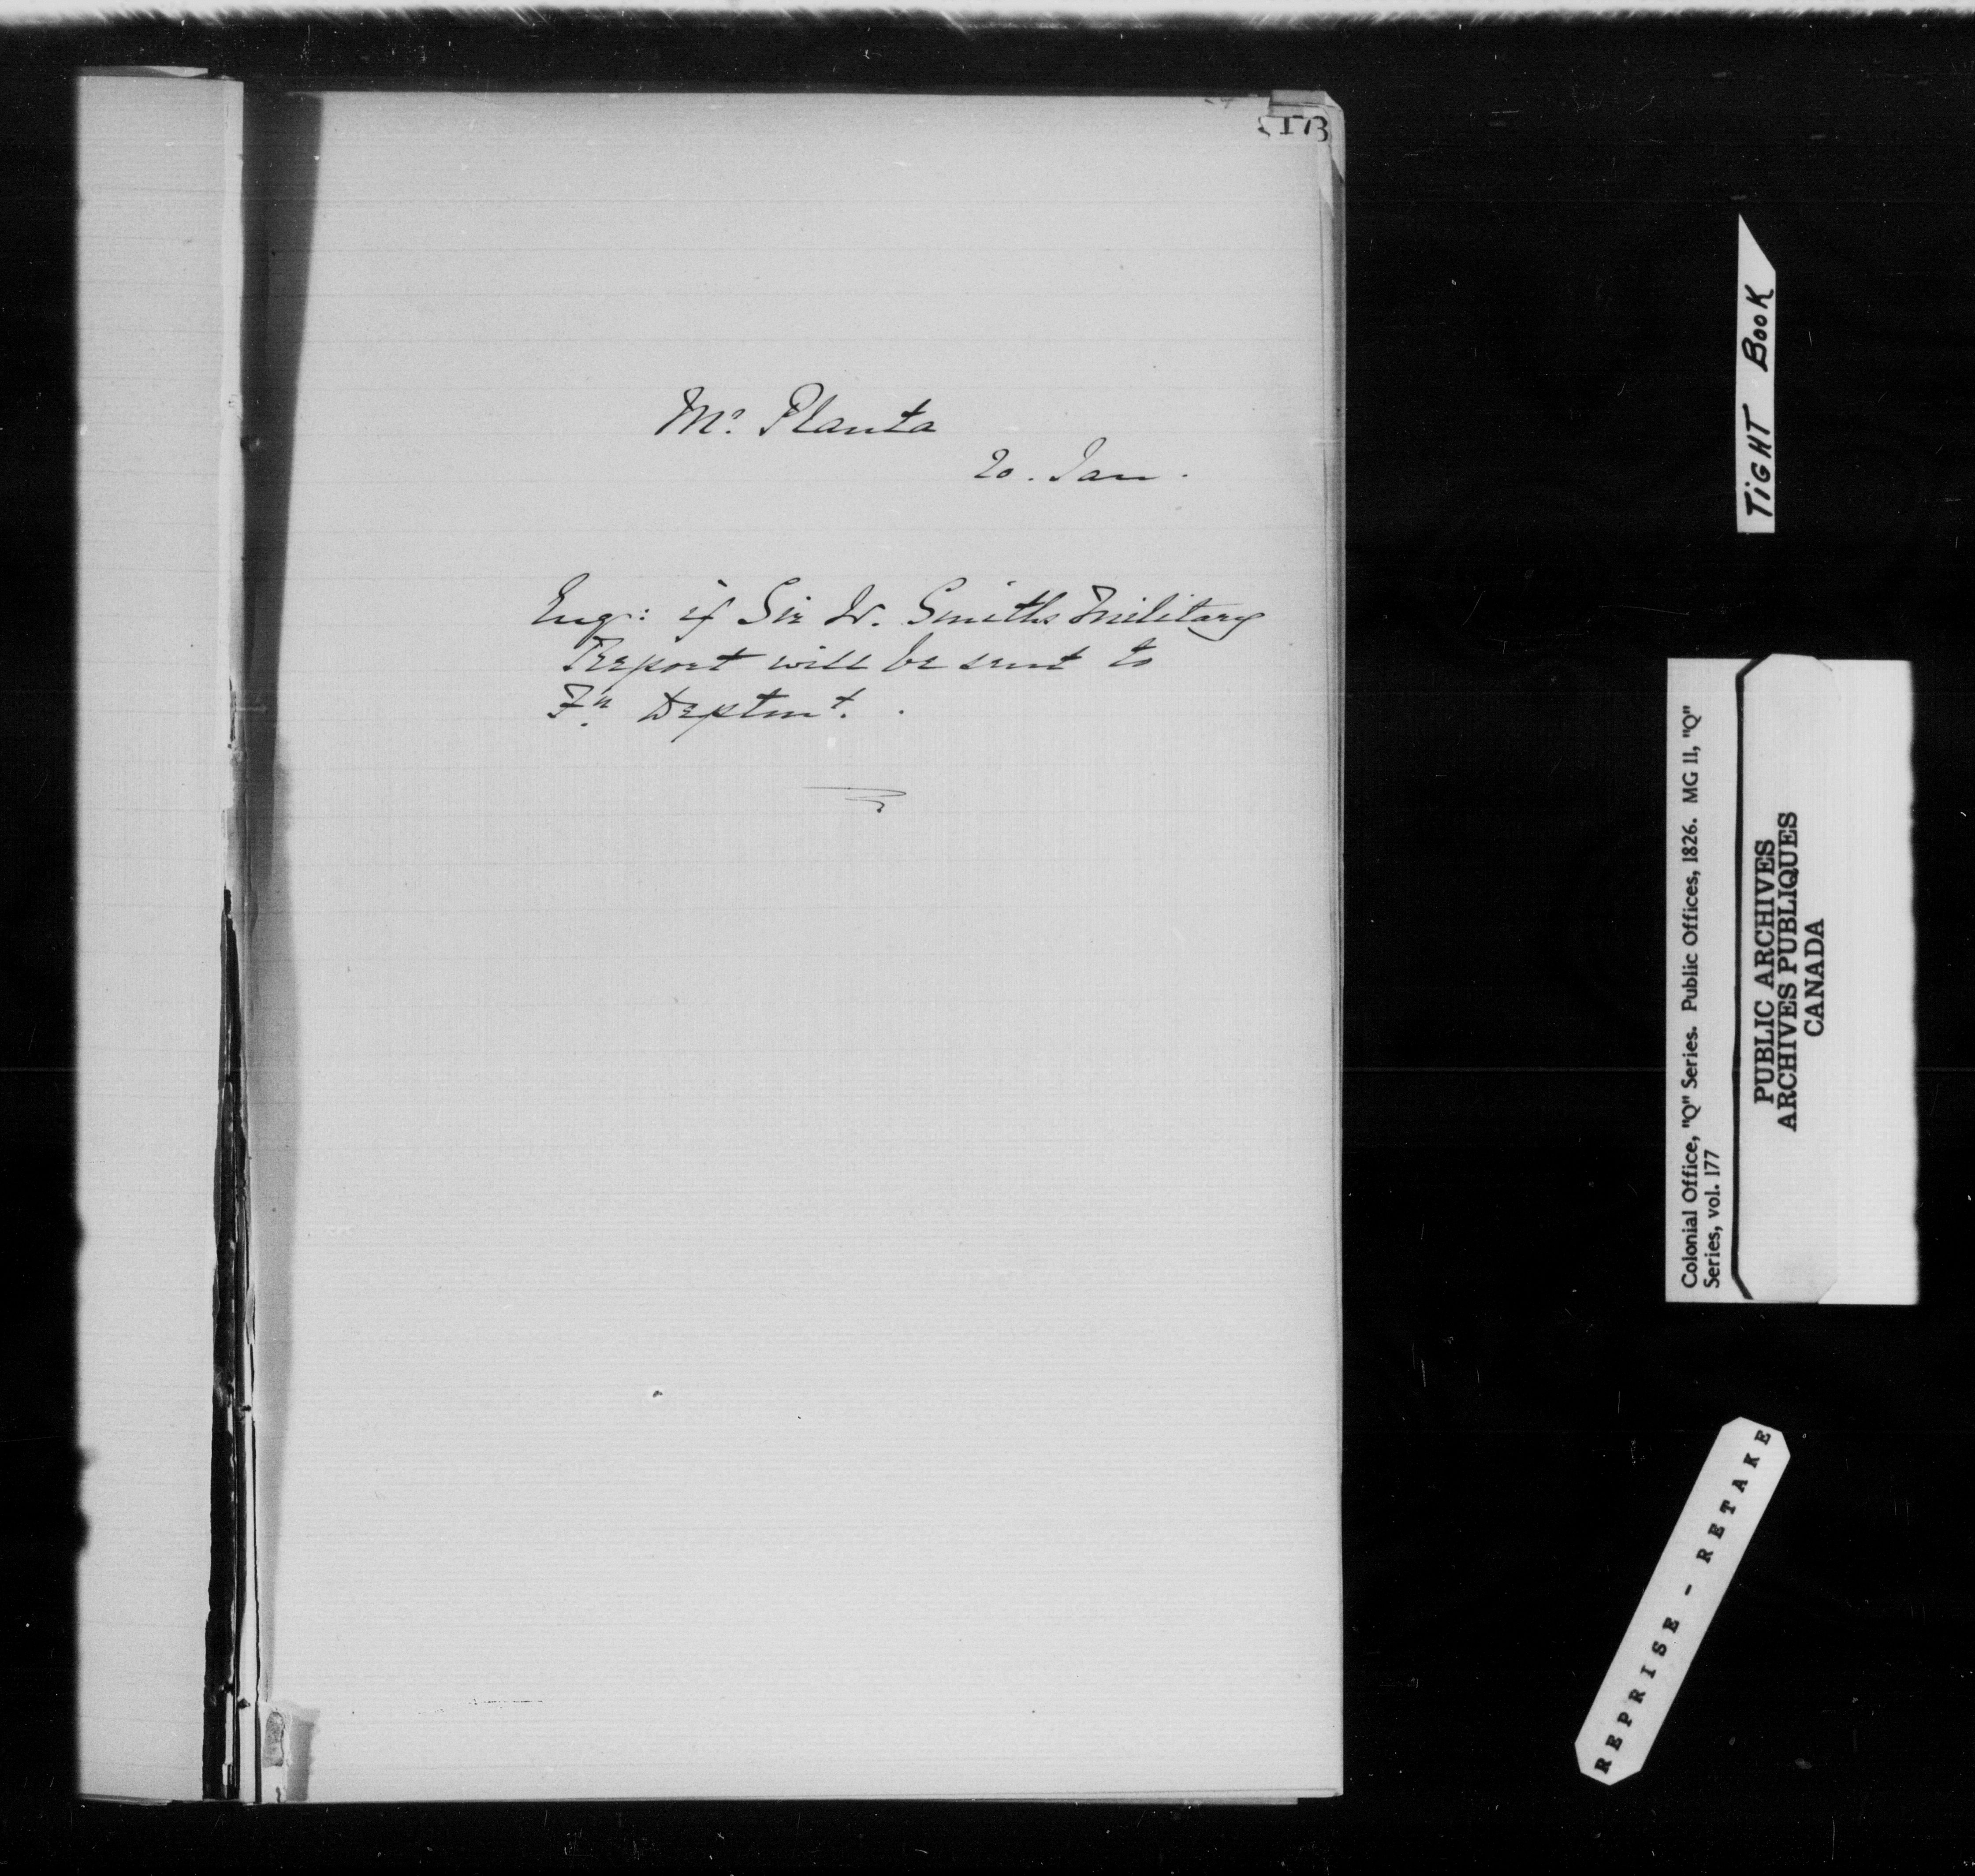 173
Mr. Planta
20. Jan.
Enqr: if Sir J. Smiths Military
Report will be sent to
Fn Deptmt.
TIGHT BOOK
Colonial Office, "Q" Series. Public Offices, 1826. MG 11, "Q"
Series, vol. 177
PUBLIC ARCHIVES
ARCHIVES PUBLIQUES
CANADA
REPRISE - RETAKE